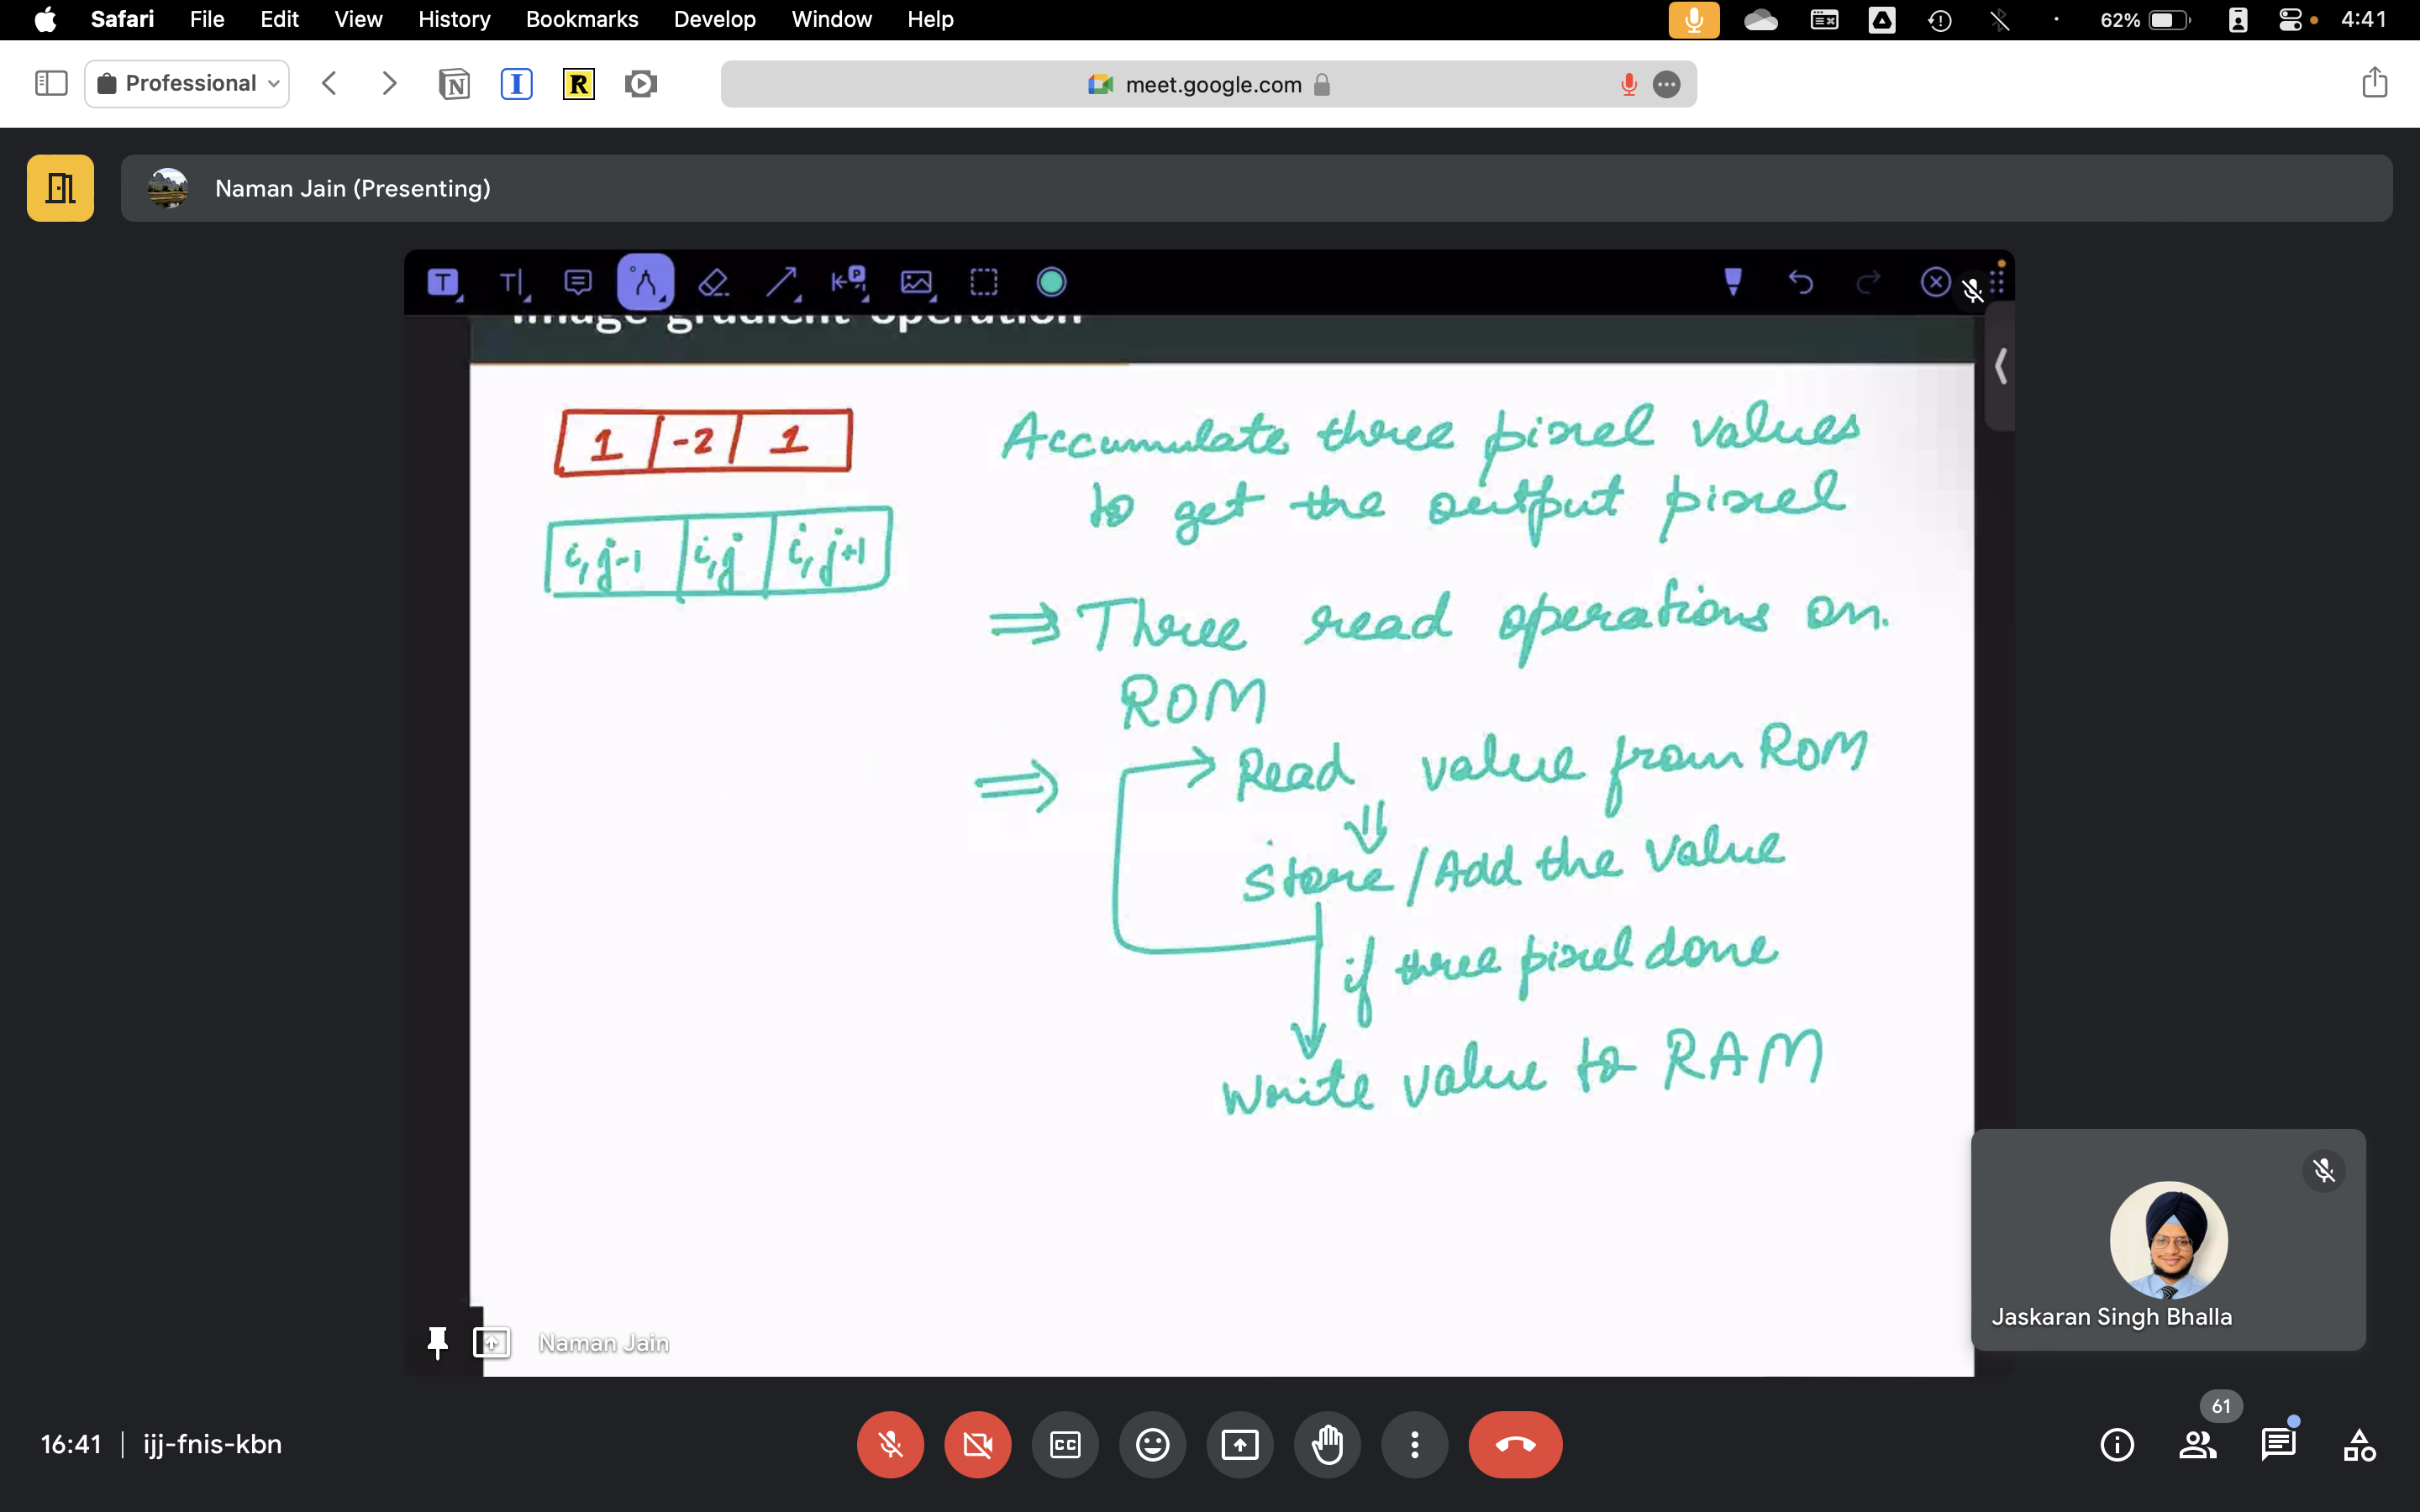 Safari File Edit View History Bookmarks Develop Window Help 62% 4:41
Professional meet.google.com
Naman Jain (Presenting)
Image gradient operation
1 -2 1
i,j-1 i,j i,j+1
Accumulate three pixel values
to get the output pixel
⇒ Three read operations on.
ROM
⇒ Read value from ROM
Store/Add the value
if three pixel done
Write value to RAM
Naman Jain
Jaskaran Singh Bhalla
61
16:41 | ijj-fnis-kbn